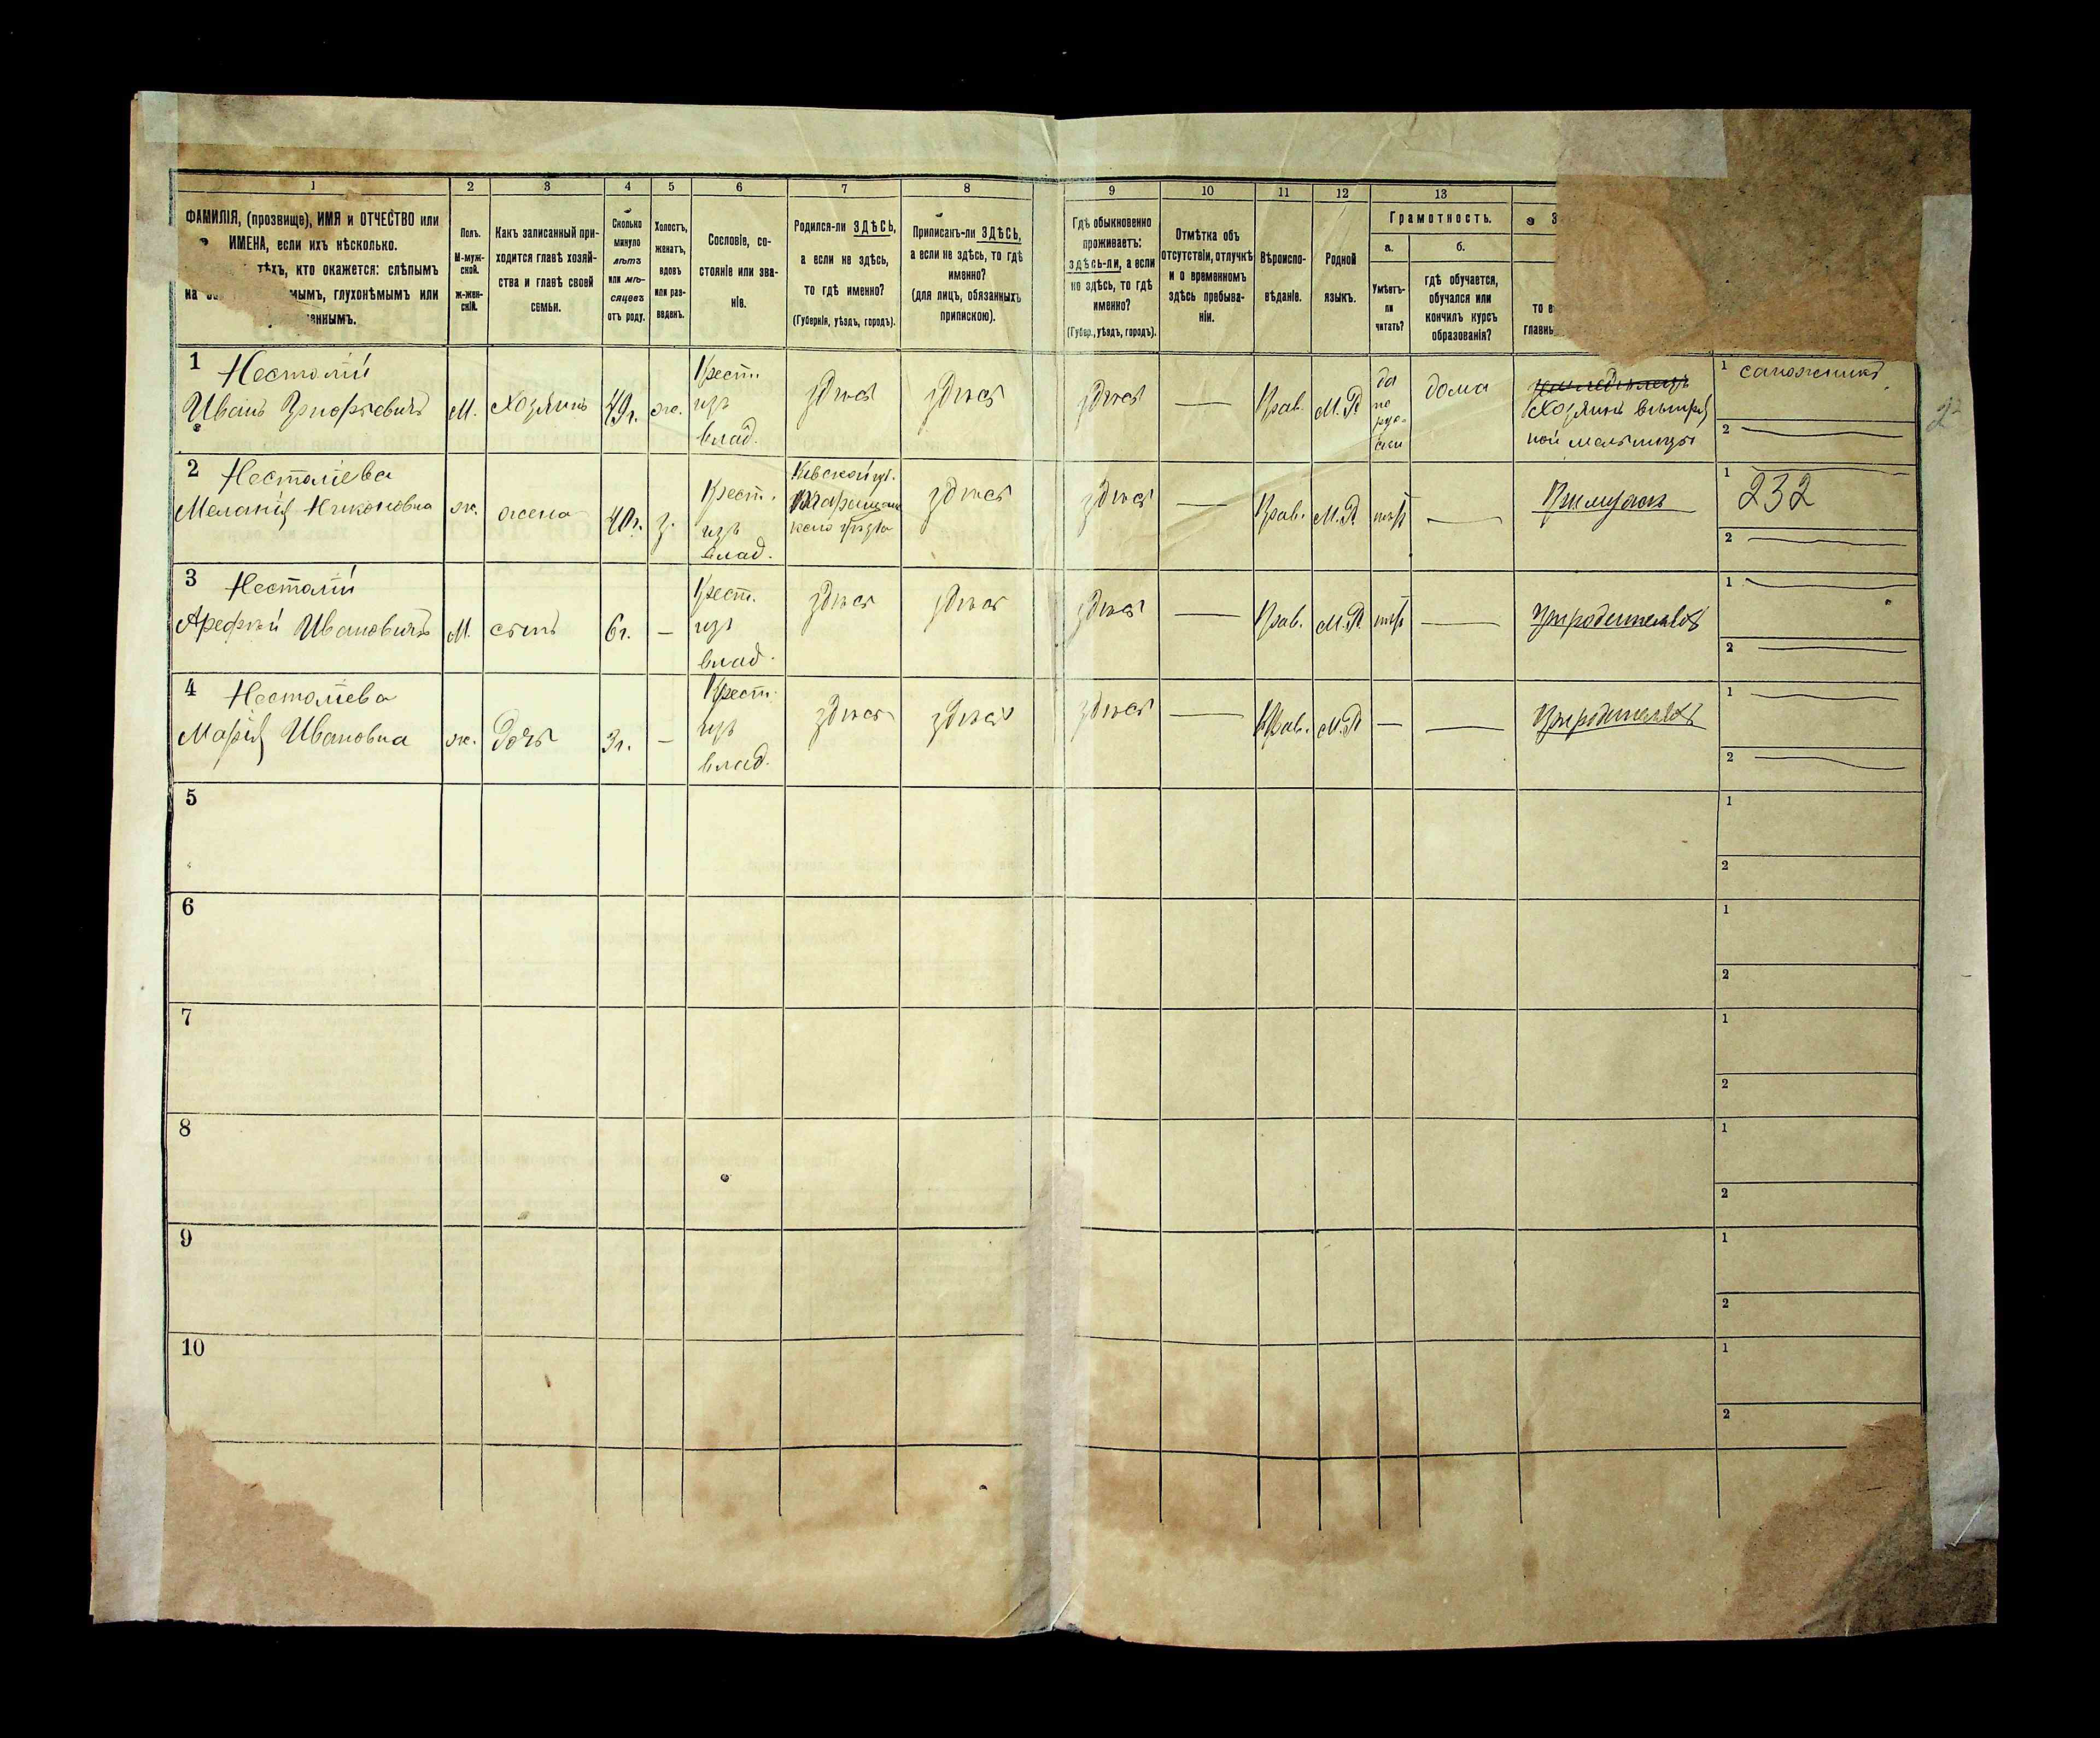 1
2
3
4
5
6
7
8
9
10
11
12
13
ФАМИЛІЯ, (прозвище), ИМЯ и ОТЧЕСТВО или
ИМЕНА, если ихъ нѣсколько.
тѣхъ, кто окажется: слѣпымъ
на
мымъ, глухонѣмымъ или
еннымъ.
Полъ.
М-муж-
ской.
Ж-жен-
скій.
Какъ записанный при-
ходится главѣ хозяй-
ства и главѣ своей
семьи.
Сколько
минуло
лѣтъ
или мѣ-
сяцевъ
отъ роду.
Холостъ,
женатъ,
вдовъ
или раз-
веденъ.
Сословіе, со-
стояніе или зва-
ніе.
Родился-ли ЗДѢСЬ,
а если не здѣсь,
то гдѣ именно?
(Губернія, уѣздъ, городъ).
Приписанъ-ли ЗДѢСЬ,
а если не здѣсь, то гдѣ
именно?
(для лицъ, обязанныхъ
припискою).
Гдѣ обыкновенно
проживаетъ:
здѣсь-ли, а если
не здѣсь, то гдѣ
именно?
(Губер., уѣздъ, городъ).
Отмѣтка объ
отсутствіи, отлучкѣ
и о временномъ
здѣсь пребыва-
ніи.
Вѣроиспо-
вѣданіе.
Родной
языкъ.
Грамотность.
а.
Умѣетъ-
ли
читать?
б.
гдѣ обучается,
обучался или
кончилъ курсъ
образованія?
то в
главны
1
Иванъ
М. Хозяинъ 49г. ж.
Крест.
изъ
влад.
здѣсь здѣсь здѣсь — Прав. М.Р.
да
по
рус-
ски
дома
Хозяинъ вѣтря
ной мельницы
1 сапожникъ
2
2
Меланія Никоновна ж. жена 40г. з.
Крест.
изъ
влад.
Кіевской губ.
здѣсь здѣсь — Прав. М.Р. нѣтъ —
1
232
2
3
Арефій Ивановичъ М. сынъ 6г. —
Крест.
изъ
влад.
здѣсь здѣсь здѣсь — Прав. М.Р. нѣтъ — При родителяхъ
1
2
4
Марія Ивановна ж. дочь 3г. —
Крест.
изъ
влад.
здѣсь здѣсь здѣсь — Прав. М.Р. — — При родителяхъ
1
2
5
1
2
6
1
2
7
1
2
8
1
2
9
1
2
10
1
2